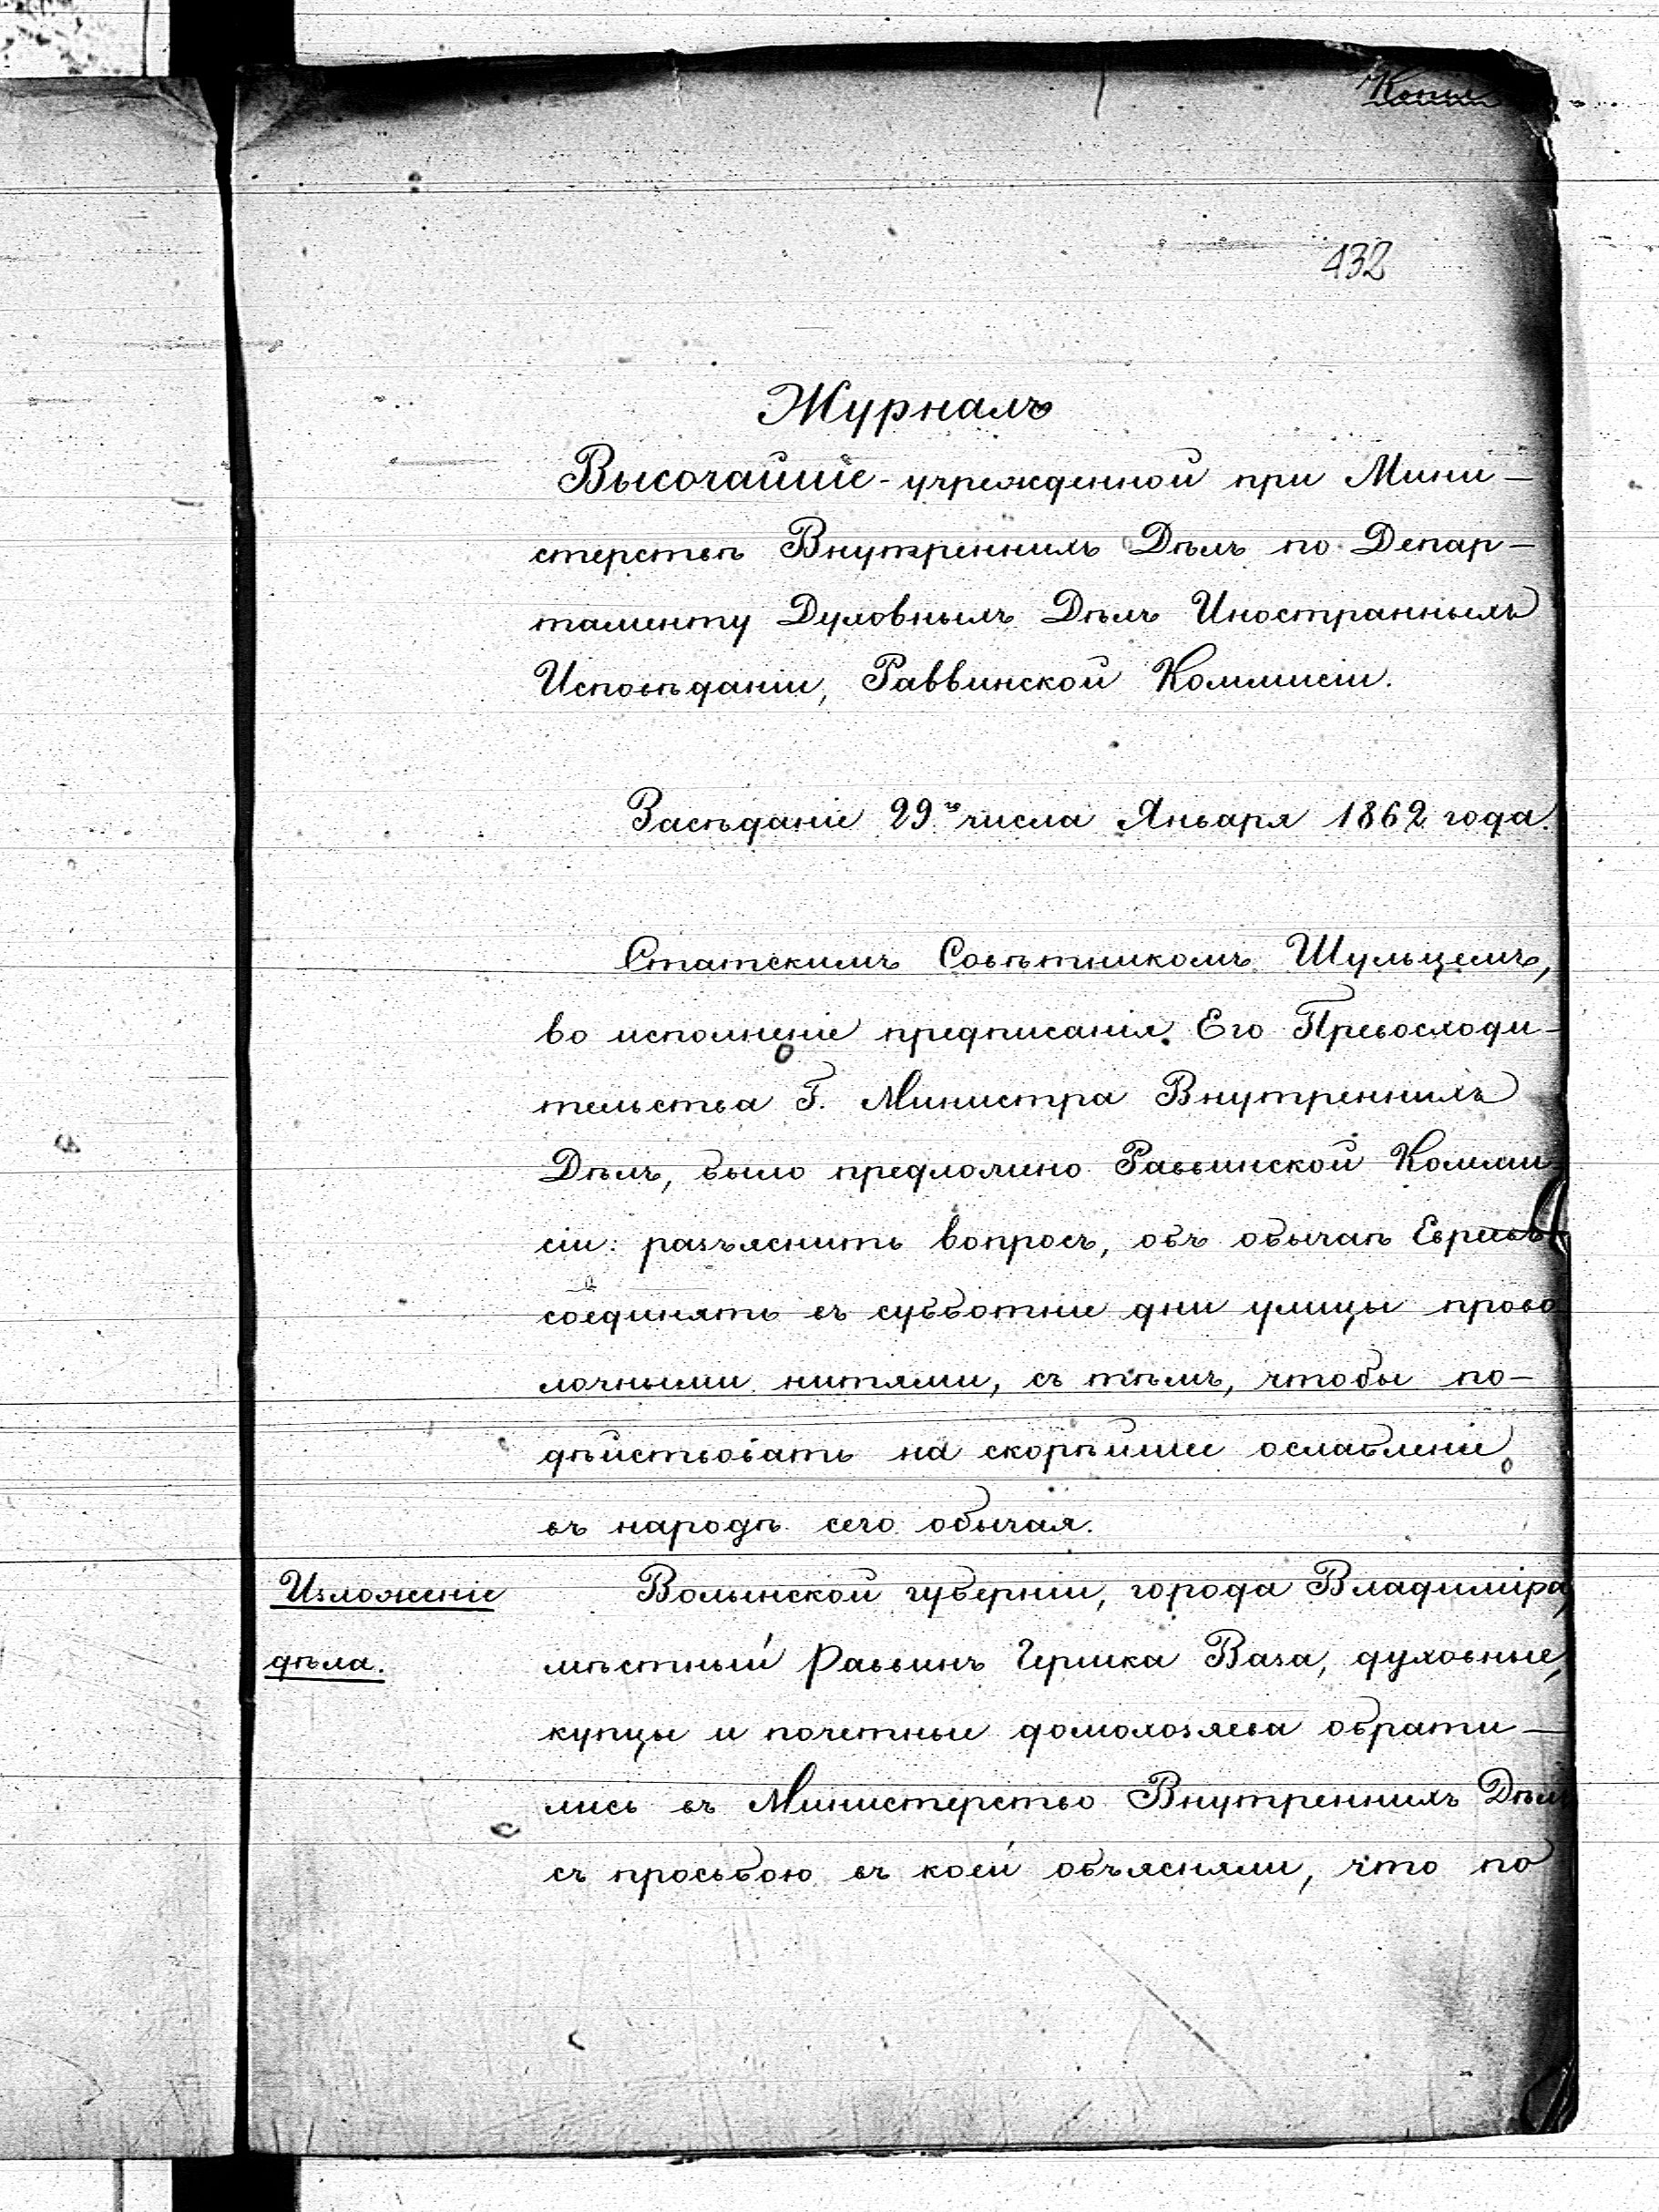 Копія
132
Журналъ
Высочайше-учрежденной при Мини-
стерствѣ Внутреннихъ Дѣлъ по Депар-
таменту Духовныхъ Дѣлъ Иностранныхъ
Исповѣданій, Раввинской Коммисіи.
Засѣданіе 29го числа Января 1862 года.
Статскимъ Совѣтникомъ Шульцемъ,
во исполненіе предписанія Его Превосходи-
тельства Г. Министра Внутреннихъ
Дѣлъ, было предложено Раввинской Комми-
сіи: разъяснить вопросъ, объ обычаѣ Евреевъ
соединять въ субботніе дни улицы прово
лочными нитями, съ тѣмъ, чтобы по-
дѣйствовать на скорѣйшее ослабленіе
въ народѣ сего обычая.
Изложеніе
дѣла.
Волынской губерніи, города Владиміра,
мѣстный Раввинъ Гершка Ваза, духовные,
купцы и почетные домохозяева обрати-
лись въ Министерство Внутреннихъ Дѣлъ
съ просьбою въ коей объясняли, что по